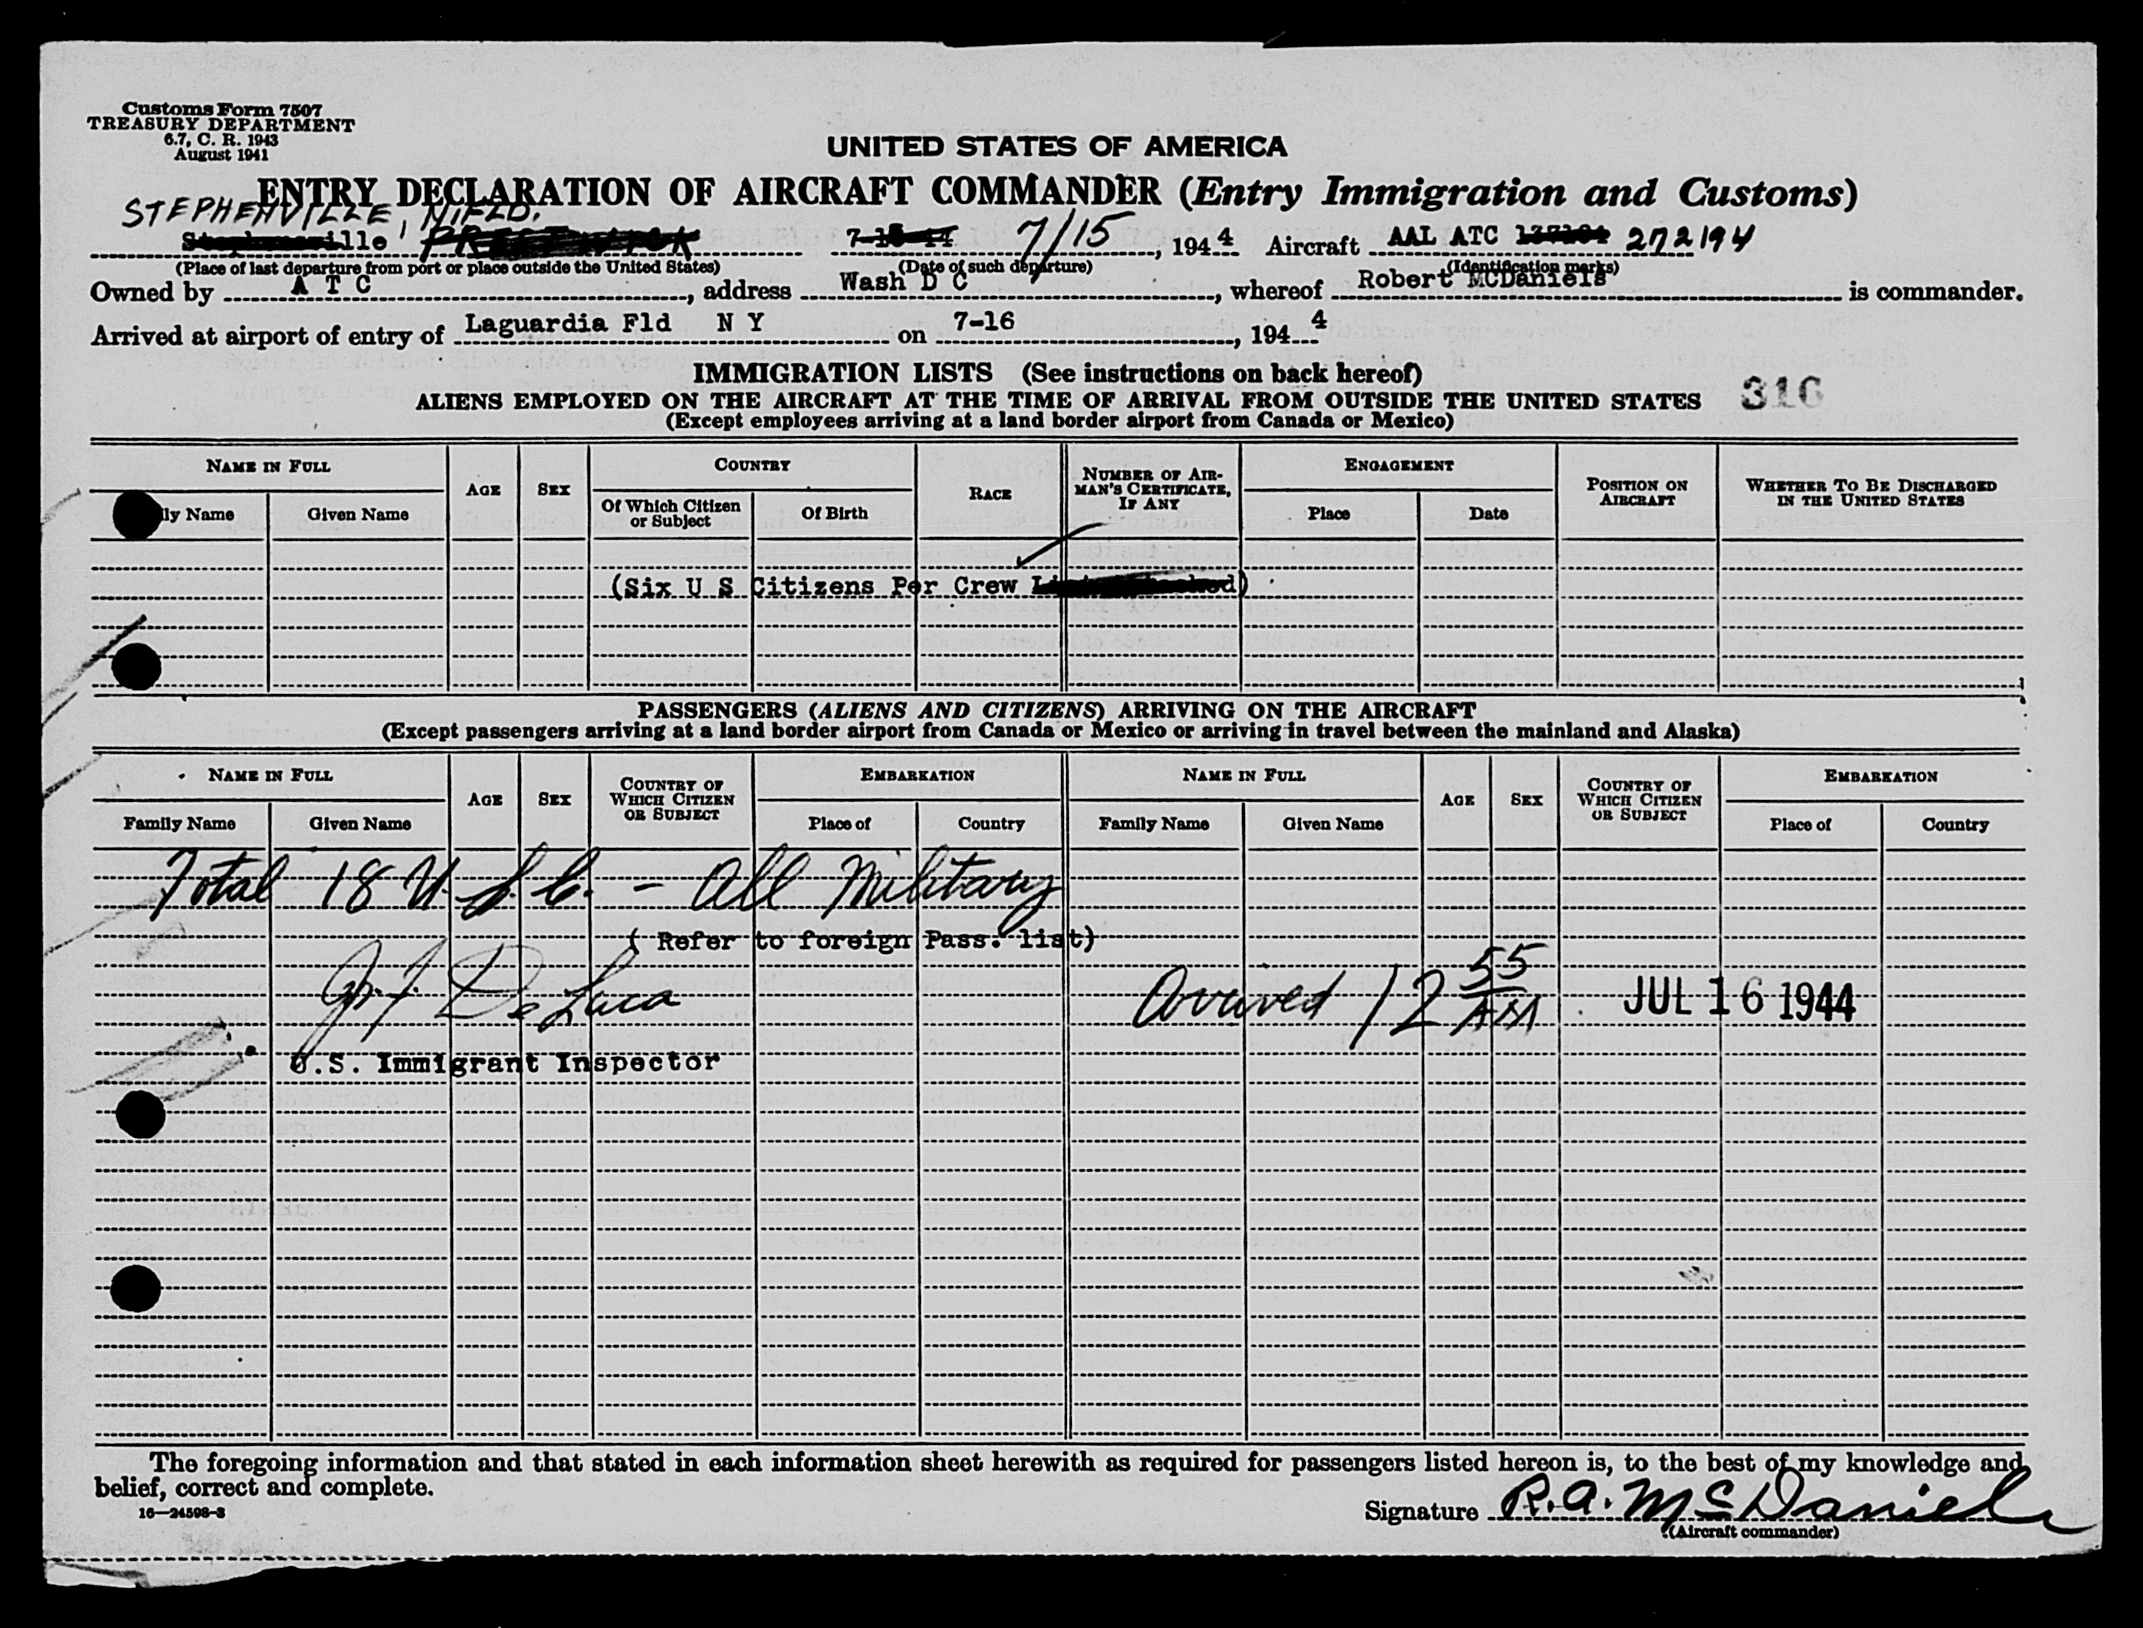 Customs Form 7507
TREASURY DEPARTMENT
6.7, C. R. 1943
August 1941
UNITED STATES OF AMERICA
ENTRY DECLARATION OF AIRCRAFT COMMANDER (Entry Immigration and Customs)
STEPHENVILLE, NFLD.
Stephenville, PRESTWICK 7-15-44 7/15, 1944 Aircraft AAL ATC 272194
(Place of last departure from port or place outside the United States) (Date of such departure) (Identification marks)
Owned by A T C, address Wash D C, whereof Robert McDaniels is commander.
Arrived at airport of entry of Laguardia Fld N Y on 7-16, 1944
IMMIGRATION LISTS (See instructions on back hereof)
ALIENS EMPLOYED ON THE AIRCRAFT AT THE TIME OF ARRIVAL FROM OUTSIDE THE UNITED STATES 316
(Except employees arriving at a land border airport from Canada or Mexico)
NAME IN FULL AGE SEX COUNTRY RACE NUMBER OF AIRMAN'S CERTIFICATE, IF ANY ENGAGEMENT POSITION ON AIRCRAFT WHETHER TO BE DISCHARGED IN THE UNITED STATES
ly Name Given Name Of Which Citizen or Subject Of Birth Place Date
(Six U S Citizens Per Crew )
PASSENGERS (ALIENS AND CITIZENS) ARRIVING ON THE AIRCRAFT
(Except passengers arriving at a land border airport from Canada or Mexico or arriving in travel between the mainland and Alaska)
NAME IN FULL AGE SEX COUNTRY OF WHICH CITIZEN OR SUBJECT EMBARKATION NAME IN FULL AGE SEX COUNTRY OF WHICH CITIZEN OR SUBJECT EMBARKATION
Family Name Given Name Place of Country Family Name Given Name Place of Country
Total 18 U.S.C. - All Military
( Refer to foreign Pass. list)
De Luca Arrived 12 55 AM JUL 16 1944
U.S. Immigrant Inspector
The foregoing information and that stated in each information sheet herewith as required for passengers listed hereon is, to the best of my knowledge and
belief, correct and complete.
16—24598-3
Signature R.A. McDaniels
(Aircraft commander)